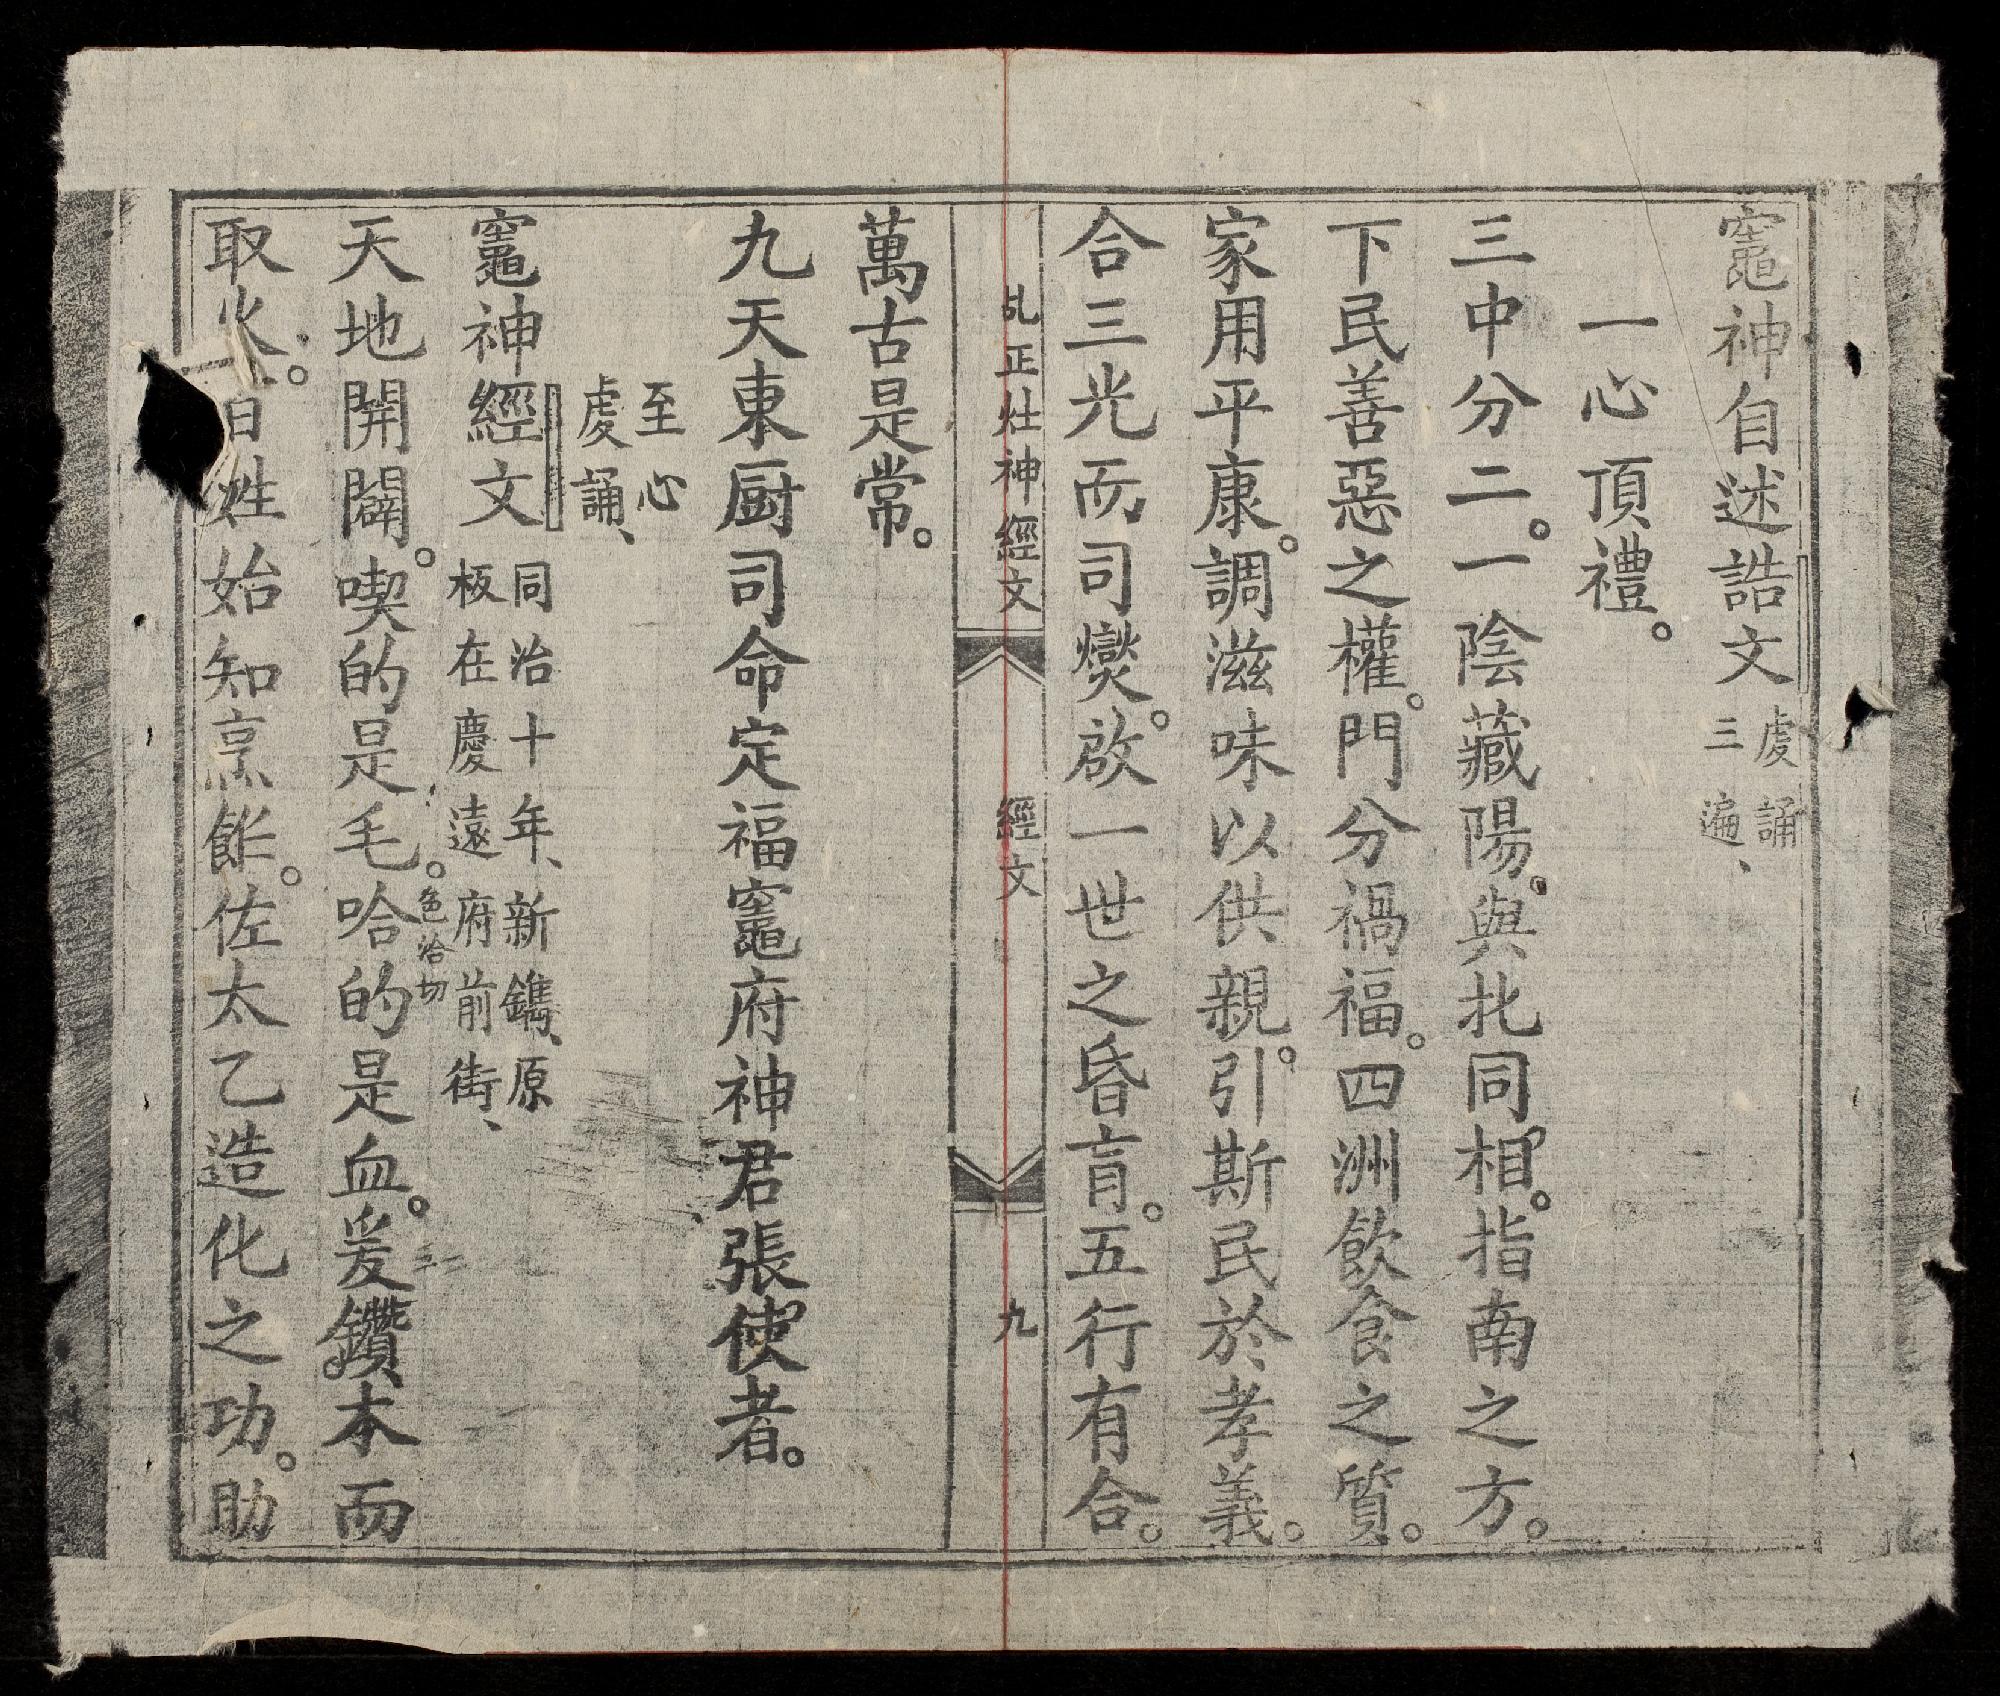 竈神自述誥文虔誦三遍、
一心頂禮。
三中分二。一陰藏陽。與北同相。指南之方。
下民善惡之權。門分禍福。四洲飲食之質。
家用平康。調滋味以供親。引斯民於孝義。
合三光而司爕。啟一世之昏肓。五行有合。
乩正灶神經文 經文 九
萬古是常。
九天東厨司命定福竈府神君張使者。
至心虔誦、
竈神經文同治十年、新鐫、原板在慶遠府前街、
天地開闢。喫的是毛。哈色洽切的是血。爰鑽木而
取火。百姓始知烹飪。佐太乙造化之功。助